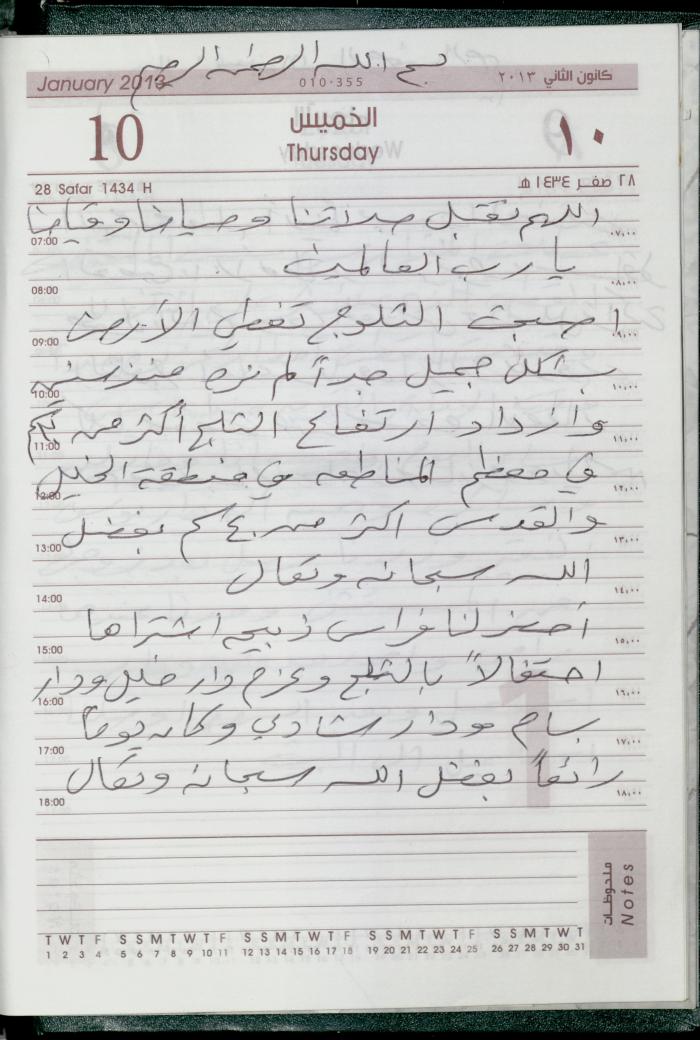 بسم الله الرحمن الرحيم
January 2013 010-355 كانون الثاني ٢٠١٣
10 الخميس ١٠
Thursday
28 Safar 1434 H ٢٨ صفر ١٤٣٤ هـ
اللهم تقبل صلاتنا وصيامنا وقيامنا
07:00 ٠٧,٠٠
يا رب العالمين
08:00 ٠٨,٠٠
اصبحت الثلوج تغطي الأرض
09:00 ٠٩,٠٠
بشكل جميل جداً لم نره منذ سنين
10:00 ١٠,٠٠
وازداد ارتفاع الثلج أكثر من
11:00 ١١,٠٠
في معظم المناطق في منطقة الخليل
12:00 ١٢,٠٠
والقدس اكثر من ٤٠ سم بفضل
13:00 ١٣,٠٠
الله سبحانه وتعالى
14:00 ١٤,٠٠
أحضر لنا فراس ذبيحه اشتراها
15:00 ١٥,٠٠
احتفالاً بالثلج وعزم دار خليل ودار
16:00 ١٦,٠٠
بسام ودار شادي وكان يوماً
17:00 ١٧,٠٠
رائعاً بفضل الله سبحانه وتعالى
18:00 ١٨,٠٠
ملحوظات
Notes
T W T F S S M T W T F S S M T W T F S S M T W T F S S M T W T
1 2 3 4 5 6 7 8 9 10 11 12 13 14 15 16 17 18 19 20 21 22 23 24 25 26 27 28 29 30 31